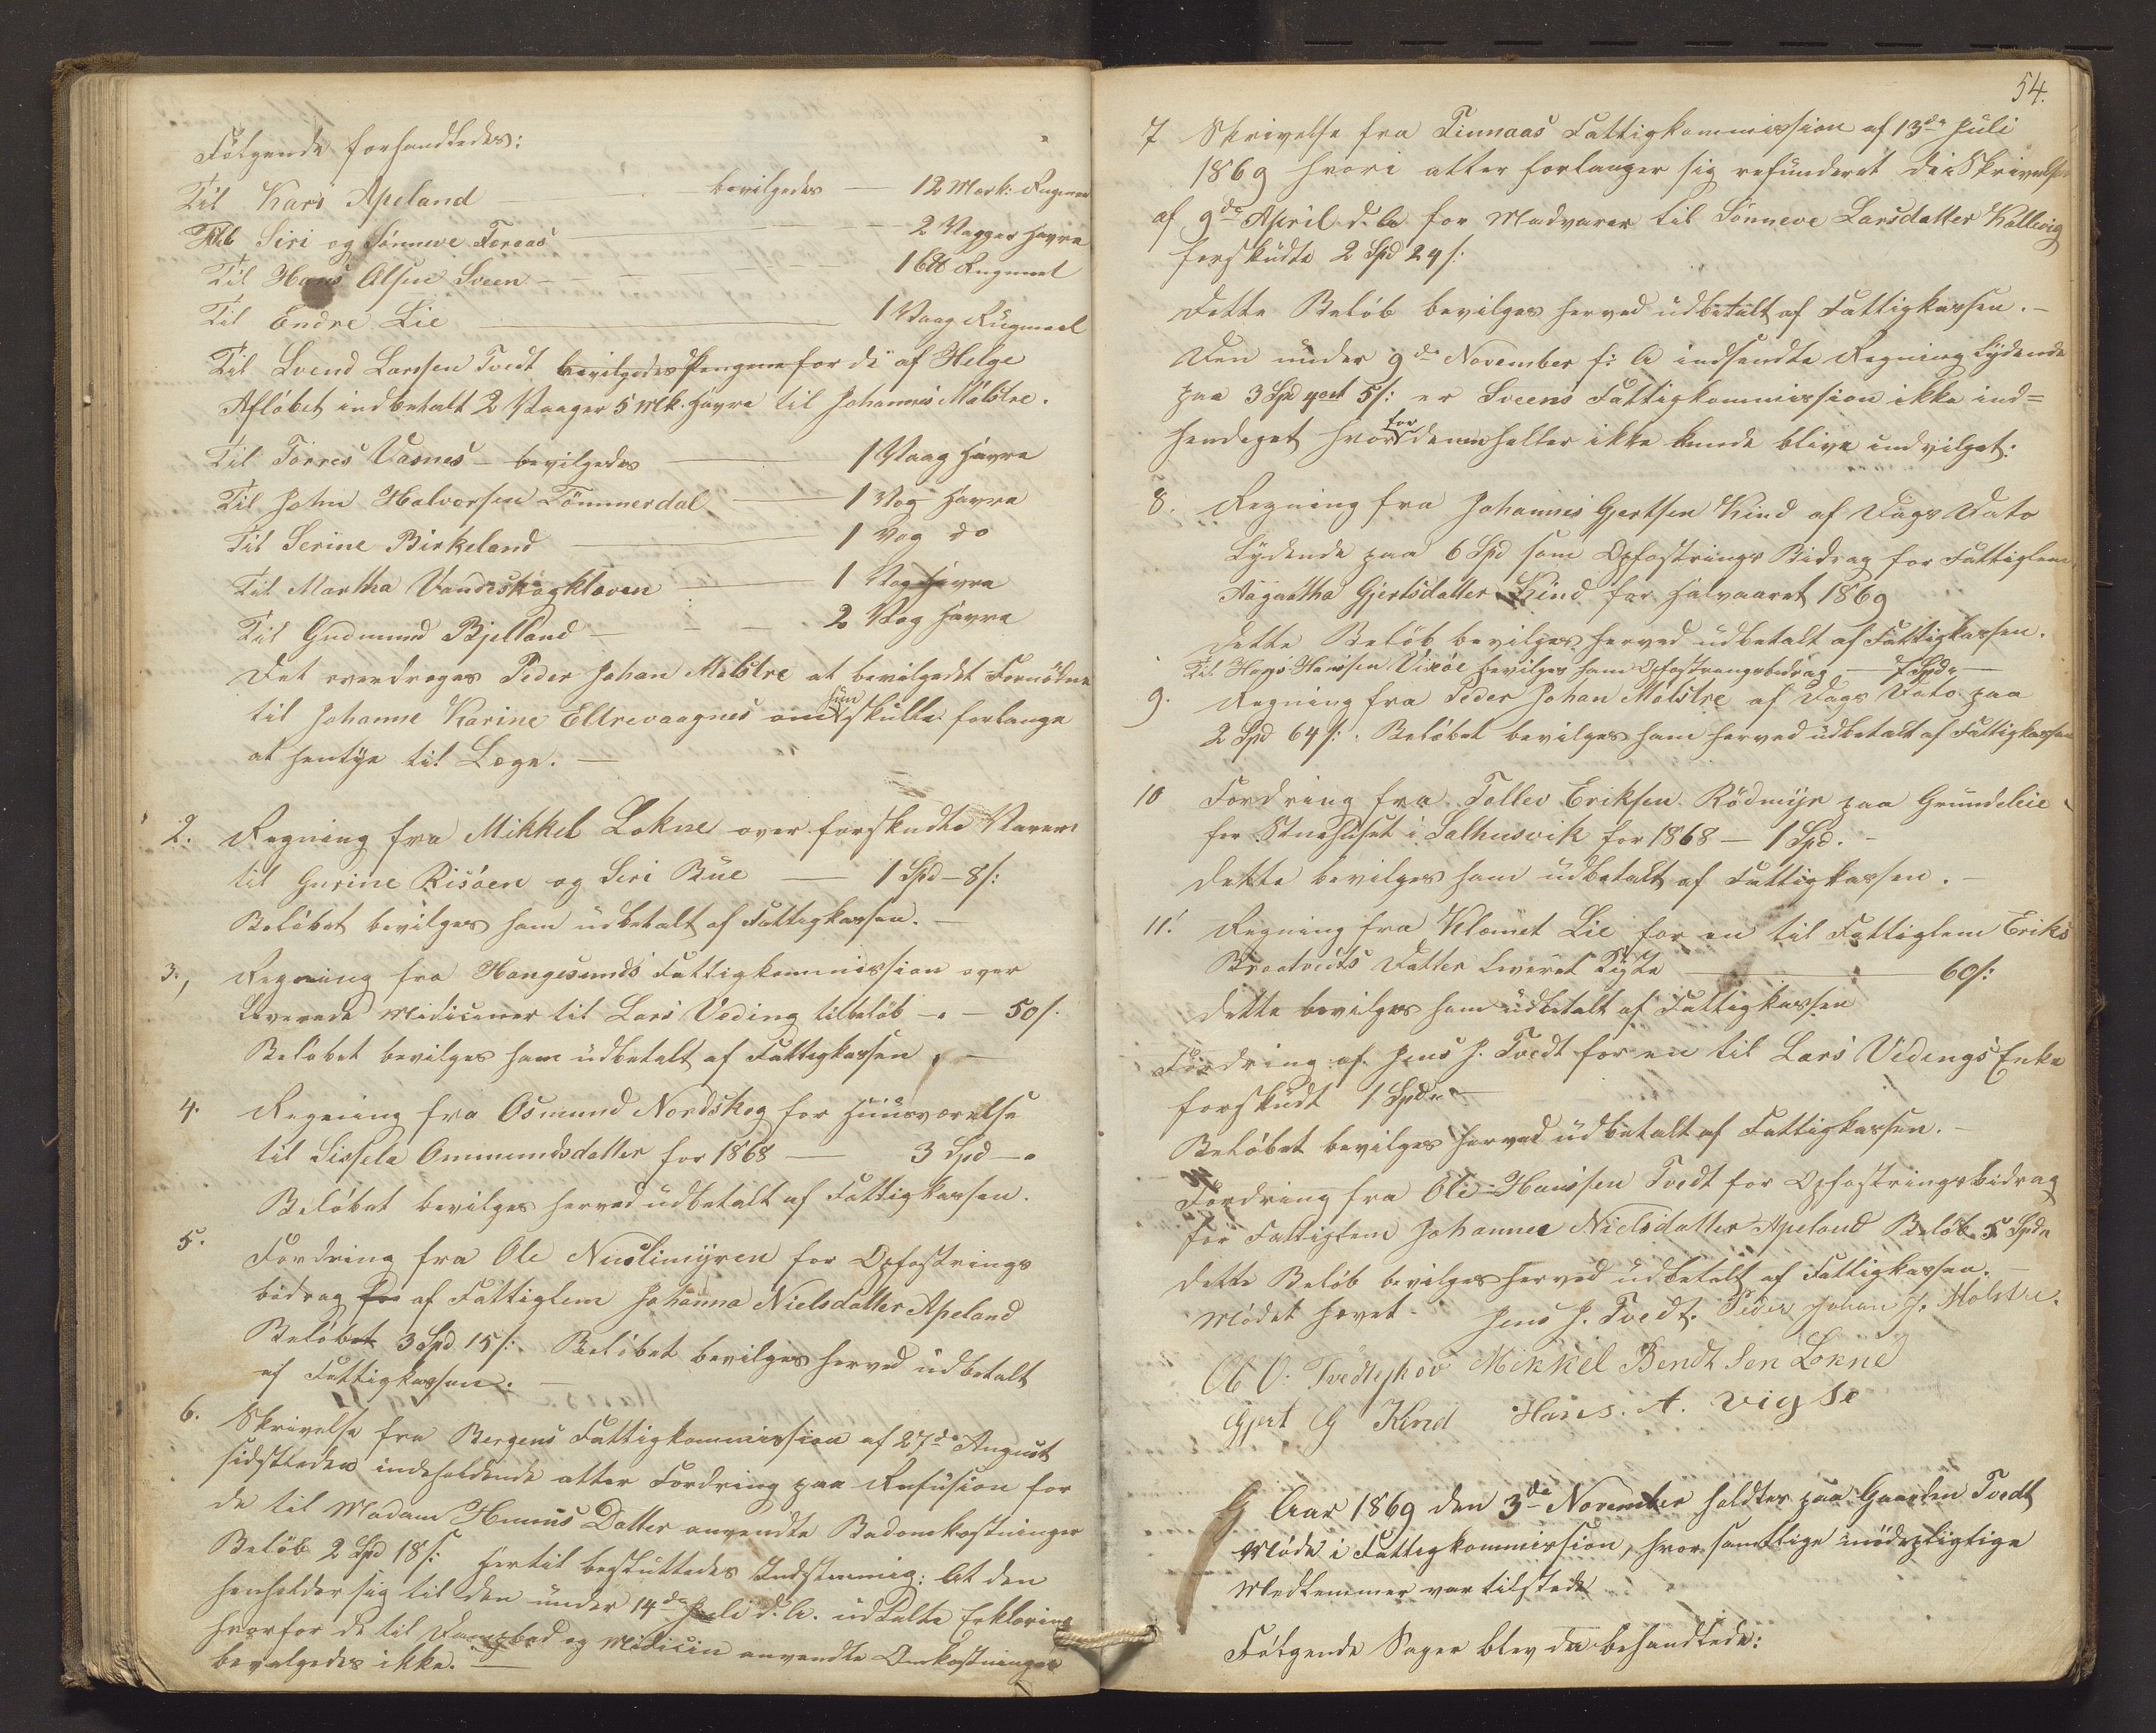 Følgende forhandledes:
Til Kari Apeland — bevilgedes — 12 Mark: Rugmel
Til Siri og Sønneve Foreaas — 2 Vaager Havre
Til Hans Olsen Sveen — 16 tt Rugmeel
Til Endre Lie — 1 Vaag Rugmeel
Til Svend Larssen Tvedt bevilgedes Pengene for de af Helge
Afløbet indbetalt 2 Vaager 5 Mk. Havre til Johannes Mølstre.
Til Torres Vasnes - bevilgedes — 1 Vaag Havre
Til John Halvorsen Tömmerdal — 1 Vog Havre
Til Serine Birkeland — 1 Vog do
Til Martha Vandskogkloven — 1 Vog Havre
Til Gudmund Bjelland — 2 Vog Havre
Det overdroges Peder Johan Mølstre at bevilgedet Fornødne
til Johanne Karine Eltrevaagnes om hun skulle forlange
at hentye til Læge. —
2. Regning fra Mikkel Lokne over forskudte Varer
til Gurine Risøen og Siri Bue — 1 Spd - 8 s:
Beløbet bevilges ham udbetalt af Fattigkassen. —
3., Regning fra Haugesunds Fattigkommission over
leverede Mediciner til Lars Veding tilbeløb — 50 s.
Beløbet bevilges ham udbetalt af Fattigkassen. —
4. Regning fra Osmund Nordskog for Huusværelse
til Sissela Ommundsdatter for 1868 — 3 Spd — "
Beløbet bevilges herved udbetalt af Fattigkassen.
5. Fordring fra Ole Nuslimyren for Opfostrings
bidrag for af Fattiglem Johanna Nielsdatter Apeland
Beløbet 3 Spd 15 s: Beløbet bevilges herved udbetalt
af Fattigkassen. —
6. Skrivelse fra Bergens Fattigkommission af 27de August
sidstleden indeholdende atter Fordring paa Refusion for
de til Madam Datter anvendte Badomkostninger
Beløb 2 Spd 18 s: Hertil besluttedes Indstemmig: At den
henholder sig til den under 14de Juli d. A. udtalte Erklæring
hvorfor de til Dampbad og Medicin anvendte Omkostninger
bevilgedes ikke. —
54.
7 Skrivelse fra Finnaas Fattigkommission af 13de Juli
1869 hvori atter forlanger sig refunderet de i Skrivelse
af 9de April d. A. for Madvarer til Sønneve Larsdatter Kallevig
forskudte 2 Spd 24 s:
Dette Beløb bevilges herved udbetalt af Fattigkassen. —
Den under 9de November f: A indsendte Regning lydende
paa 3 Spd 5 s: er Sveens Fattigkommission ikke ind=
hendeget hvorfor denne heller ikke kunde blive indvilget.
8. Regning fra Johannes Gjertsen Kind af Dags Dato
Lydende paa 6 Spd som Opfostrings Bidrag for Fattiglem
Aagaatha Gjertsdatter Kind for Halvaaret 1869
Dette Beløb bevilges herved udbetalt af Fattigkassen.
Til Hans Hansen Vixøe bevilges ham Opfostrangsbidrag — 7 Spd " —
9. Regning fra Peder Johan Mølstre af Dags Dato paa
2 Spd 64 s: . Beløbet bevilges ham herved udbetalt af Fattigkassen
10 Fordring fra Tollev Eriksen Rödmyr paa Grundeleie
for Stuehuset i Salhusvik for 1868 — 1 Spd. —
Dette bevilges ham udbetalt af Fattigkassen. —
11. Regning fra Klemet Lie for en til Fattiglem Eriks
Braatvedts Datter leveret Kiste — 60 s:
Dette bevilges ham udbetalt af Fattigkassen
Fordring af Jens J. Tvedt for en til Lars Vedings Enke
forskudt 1 Spd " —
Beløbet bevilges herved udbetalt af Fattigkassen. —
Fordring fra Ole Hansen Tvedt for Opfostringsbidrag
for Fattiglem Johanne Nielsdatter Apeland Beløb 5 Spd "
Dette Beløb bevilges herved udbetalt af Fattigkassen. —
Mødet hævet — Jens J. Tvedt. Peder Johan J. Mølstre.
O O. Tvedteskov Mikkel Bendt Sen Lokne
Gjert G Kind Hans. A. Vigse
Aar 1869 den 3de November holdtes paa Gaarden Tvedt
Møde i Fattigkommission, hvor samtlige mødepligtige
Medlemmer var tilstede
Følgende Sager blev da behandlede: